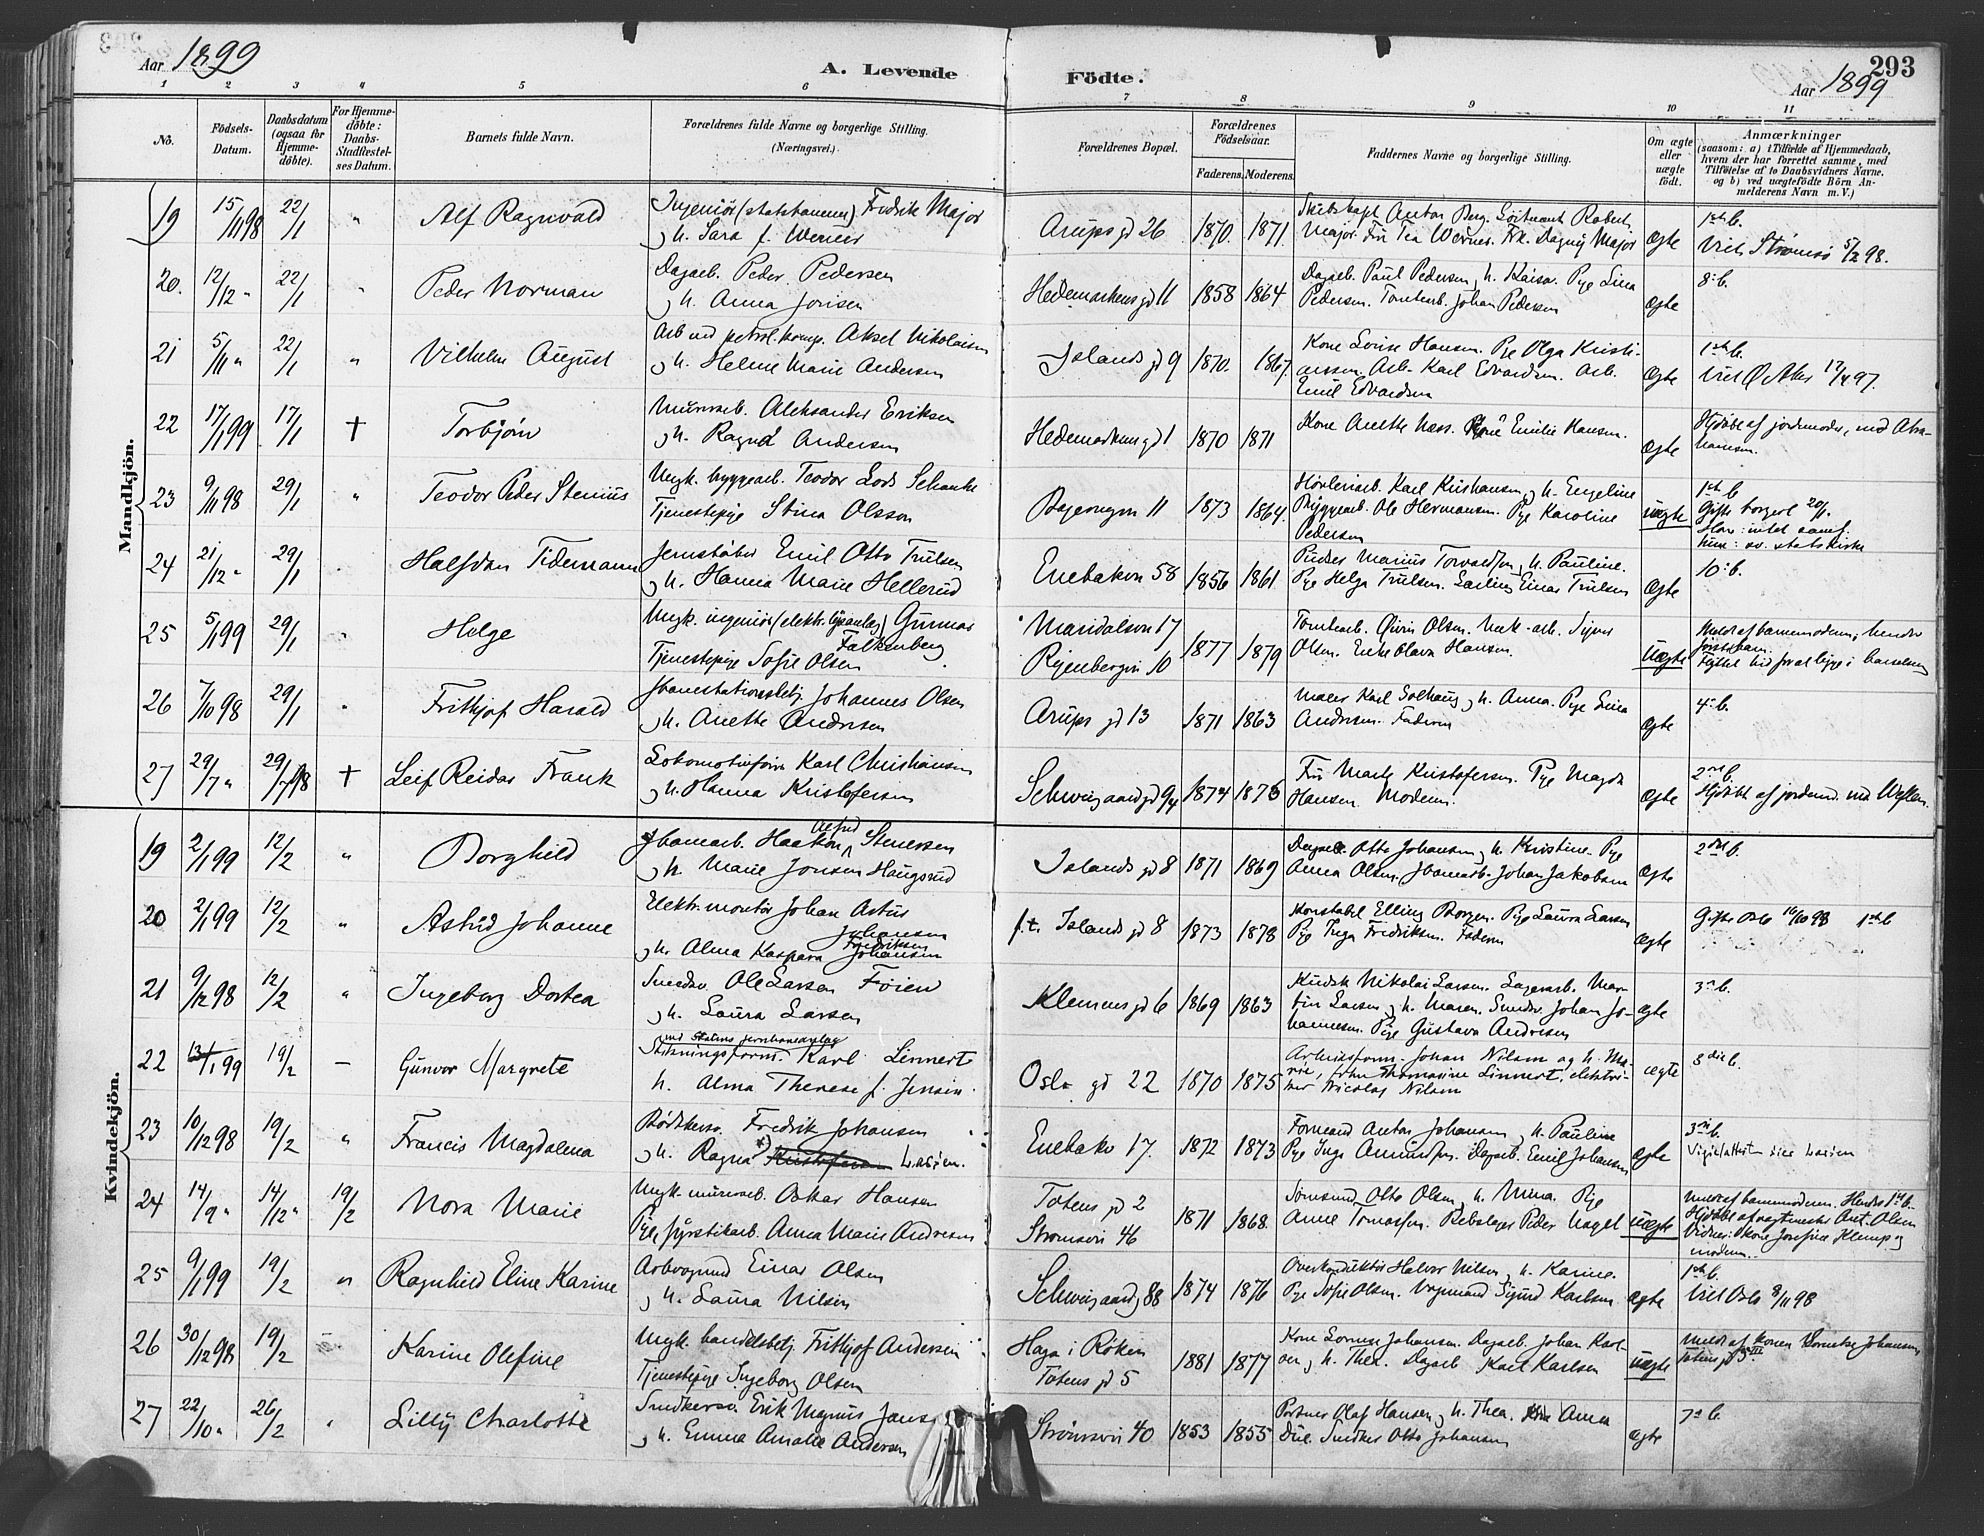 293
Aar 1899
A. Levende
Födte.
Aar 1899
1 2 3 4 5 6 7 8 9 10 11
No.
Födsels-
Datum.
Daabsdatum
(ogsaa for
Hjemme-
döbte).
For Hjemme-
döbte:
Daabs-
Stadfestel-
ses Datum.
Barnets fulde Navn.
Forældrenes fulde Navne og borgerlige Stilling.
(Næringsvei.)
Forældrenes Bopæl.
Forældrenes
Födselsaar.
Faderens. Moderens.
Faddernes Navne og borgerlige Stilling.
Om ægte
eller
uægte
födt.
Anmærkninger
(saasom: a) i Tilfælde af Hjemmedaab,
hvem der har forrettet samme, med
Tilföielse af to Daabsvidners Navne.
og b) ved uægtefödte Börn An-
melderens Navn m. V.)
Mandkjön.
19 15/11 98 22/1 " Alf Ragnvald
Ingeniør (statsbanerne) Fredrik Major
h. Sara f. Werner
Arups gd 26 1870. 1871.
Skibskapt Anton Berg. Løitnant Robert
Major. Fru Tea Werner. Frk. Dagny Major
Ægte
1ste b.
Viet Strømsø 5/2 98.
20. 12/12 " 22/1 " Peder Norman
Dagarb. Peder Pedersen
h. Anna Jonsen
Hedemarkens gd 11 1858 1864
Dagarb. Paul Pedersen, h. Kaisa. Pige Lina
Pedersen. Tomtearb. Johan Pedersen
Ægte
8: b.
21 5/11 " 22/1 " Vilhelm August
Arb ved petrol. komp. Aksel Nikolaisen
h. Helene Marie Andersen
Islands gd 9 1870. 1867.
Kone Lovise Hansen. Pige Olga Kristi-
ansen. Arb. Karl Edvardsen. Arb.
Emil Edvardsen
Ægte
1ste b.
Viet Ø. Aker 17/4 97.
22 17/1 99 17/1 + Torbjørn
Murerarb. Aleksander Eriksen
h. Ragna Andersen
Hedemarkens gd 1 1870 1871
Kone Anethe Næss. Kone Emilie Hansen.
Ægte
Hjdøbt af jordmoder, md Abra-
hamsen.
23 9/11 98 29/1 " Teodor Peder Stenius
Ungk. bryggearb. Teodor Lods Schanke
Tjenestepige Stina Olsson
1873 1864.
Høvleriarb. Karl Kristiansen, h. Engeline
Bryggearb. Ole Hermansen. Pige Karoline
Pedersen
Uægte
1ste b
Gifte borgerl 20/1.
Han: intet samf.
hun: sv. statskirke
24 21/12 " 29/1 Halfdan Tidemann
Jernstøber Emil Otto Trulsen
h. Hanna Marie Hellerud
Enebakvn 58 1856 1861.
Pudser Marius Torvaldsen, h. Pauline.
Pige Helga Trulsen. Lærling Einar Trulsen
Ægte
10: b.
25 5/1 99 29/1 " Helge
Ungk. ingeniør (elektr. lysanlæg) Gunnar
Falkenberg
Tjenestepige Sofie Olsen
Maridalsvn 17
Ryenbergvn 10
1877 1879
Tomtearb. Øivin Olsen.
Olsen. Enke Olava Hansen.
Uægte
Meldt af barnemoderen; hendes
første barn.
Flyttet hid for at ligge i barselseng
26 7/10 98 29/1 " Frithjof Harald
Jbanestationsbetj. Johannes Olsen
h. Anette Andersen
Arups gd 13 1871 1863
Maler Karl Solhaug, h. Anna. Pige Lina
Andersen. Faderen
Ægte
4: b.
27 29/7 " 29/7 98 + Leif Reidar Frank
Lokomotivform Karl Christiansen
h. Hanna Kristofersen
Schweigaards gd 94 1874 1875
Fru Marte Kristofersen. Pige Magda
Hansen. Moderen.
Ægte
2det b.
Hjdøbt af jordmd. md
Kvindekjön.
19 2/1 99 12/2 " Borghild
Jbanearb. Haakon Alfred Stenersen
h. Marie Jonsen Haugsrud
Islands gd 8 1871 1869
Dagarb. Otto Johansen, h. Kristine. Pige
Anna Olsen. Jbanearb. Johan Jakobsen
Ægte
2det b.
20 2/1 99 12/2 " Astrid Johanne
Elektr. montør Johan Astur
Johansen
h. Alma Kaspara Fredriksen
Johansen
f.t. Islands gd 8 1873 1878
Konstabel Elling Borgen. Pige Laura Larsen
Pige Inga Fredriksen. Faderen
Ægte
Gifte Oslo 16/10 98 1ste b
21 9/12 98 12/2 " Ingeborg Dortea
Smedsv. Ole Larsen Føien
h. Laura Larsen
Klemens gd 6 1869 1863
Kudsk Nikolai Larsen. Lagerarb. Mar-
tin Larsen, h. Maren. Smedsv. Johan Jo-
hannesen. Pige Gustava Andresen
Ægte
3: b.
22 13/1 99 19/2 – Gunvor Margrete
ved Statens jernbaneanlæg
Stikningsform. Karl Linnert
h. Alma Therese f. Jensen.
Oslo gd 22 1870 1875
Arbeidsform. Johan Nilsen og h. Ma-
rie, Thomasine Linnert, elektri-
ker Nicolay Nilsen
ægte
3die b.
23 10/12 98 19/2 " Francis Magdalena
Bødkersv. Fredrik Johansen
h. Ragna
Enebakv 17. 1872 1873
Formand Anton Johansen, h. Pauline
Pige Inga Amundsen. Dagarb. Emil Johansen
Ægte
3: b.
24 14/9 " 14/12 " 19/2 Nora Marie
Ungk. murerarb. Oskar Hansen
Pige, fyrstikarb. Anna Marie Andresen
Totens gd 2
Strømsvn 46
1871 1868.
Sømand Otto Olsen, h. Mina. Pige
Anne Tomassen. Rebslager Peder Nagel
Uægte
Meldt af barnmoderen. Hendes 1ste b.
Hjdøbt af vagtmester Ant. Olsen
Vidner: Kone Josefine Klemp og
moderen.
25 9/1 99 19/2 " Ragnhild Eline Karine
Arbvognmd Einar Olsen
h. Laura Nilsen
Schweigaards g 88 1874 1876
Overkonduktør Halvor Nilsen, h. Karine.
Pige Sofie Olsen. Vognmand Sigurd Karlsen
Ægte
1ste b.
Viet Oslo 8/11 98
26 30/12 98 19/2 Karine Olefine
Ungk. handelsbetj. Frithjof Andersen
Tjenestepige Ingeborg Olsen
Haga i Røken
Totens gd 5
1881 1877
Kone Lovise Johansen. Dagarb. Johan Karl-
sen, h. Thea. Dagarb Karl Karlsen
Uægte
Meldt af konen Johansen
Totens gd 5 III
27 22/10 " 26/2 " Lilly Charlotte
Smedkersv. Erik Magnus Jans
h. Emma Amalie Andersen
Strømsvn 40 1853 1855
Portner Olaf Hansen, h. Thea. Anna
Due. Snedker Otto Johansen
Ægte
7: b.